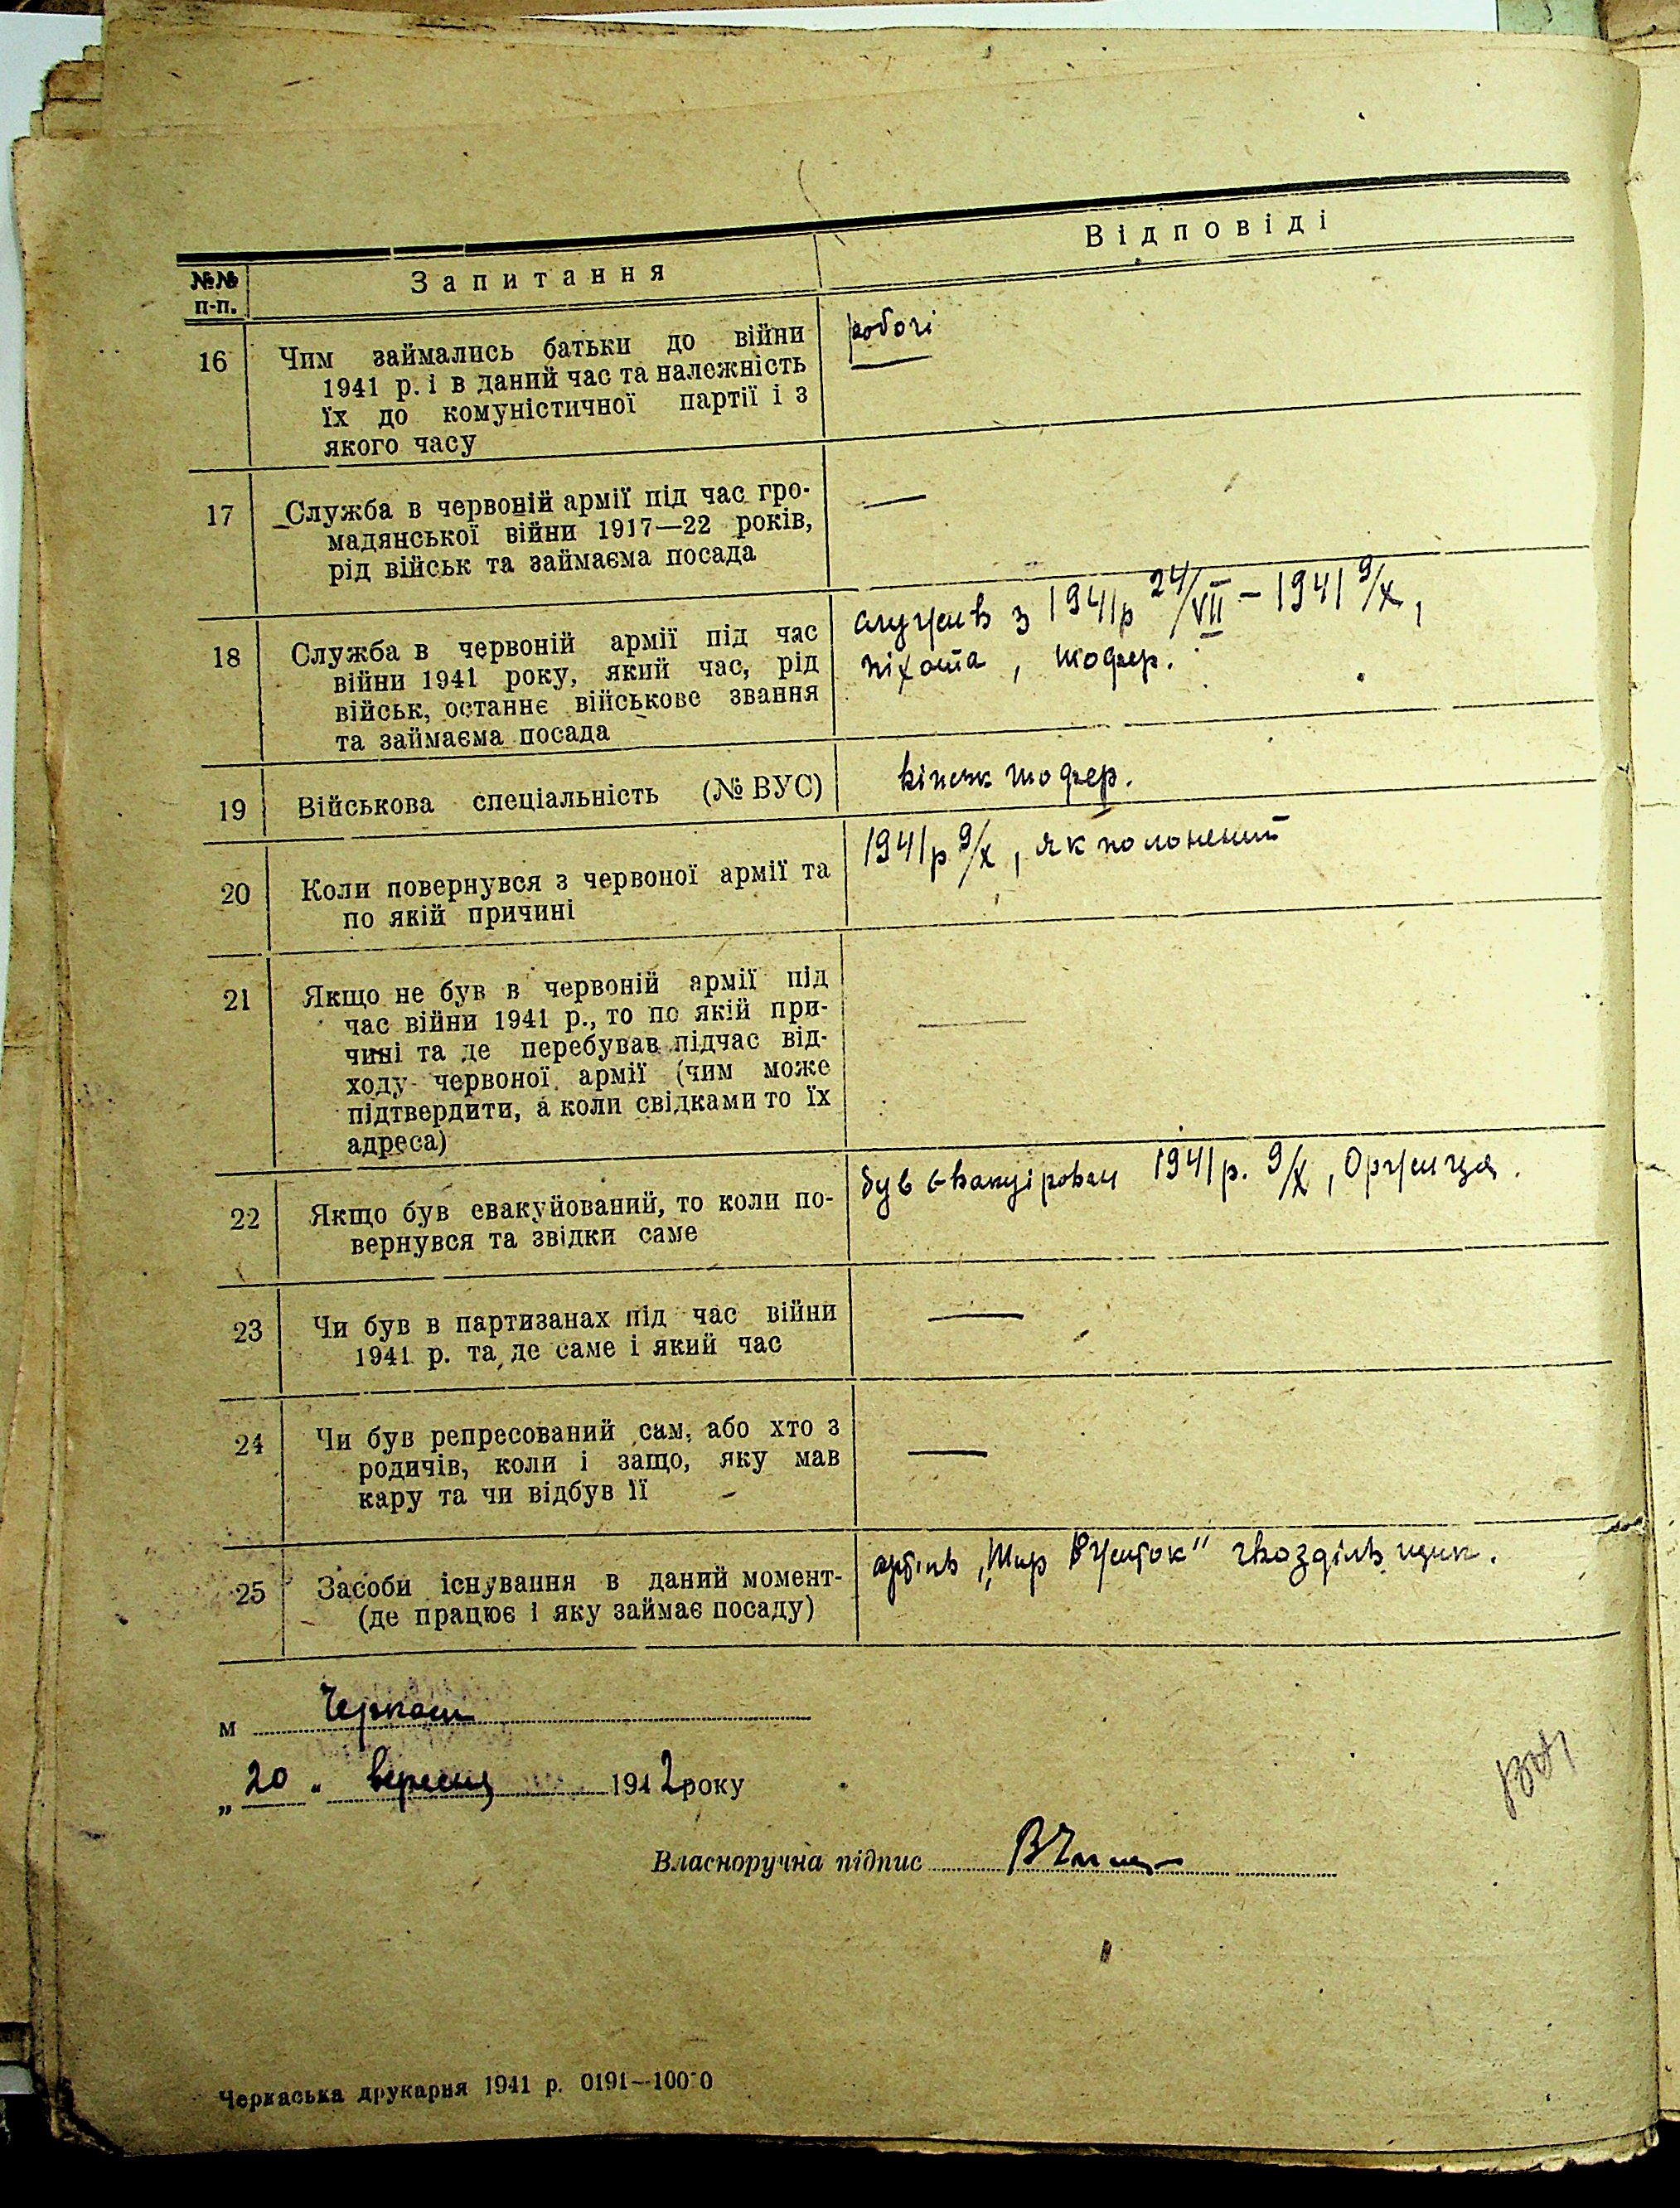 №№ п-п.
Запитання
Відповіді
16
Чим займались батьки до війни
1941 р. і в даний час та належність
їх до комуністичної партії і з
якого часу
робочі
17
Служба в червоній армії під час гро-
мадянської війни 1917—22 років,
рід військ та займаєма посада
—
18
Служба в червоній армії під час
війни 1941 року, який час, рід
військ, останнє військове звання
та займаєма посада
служив з 1941р 24/VII – 1941 9/X,
піхота, шофер.
19
Військова спеціальність (№ ВУС)
шофер.
20
Коли повернувся з червоної армії та
по якій причині
1941р 9/X, як полонений
21
Якщо не був в червоній армії під
час війни 1941 р., то по якій при-
чині та де перебував підчас від-
ходу червоної армії (чим може
підтвердити, а коли свідками то їх
адреса)
—
22
Якщо був евакуйований, то коли по-
вернувся та звідки саме
був евакуірован 1941р. 9/X, Оржица.
23
Чи був в партизанах під час війни
1941 р. та де саме і який час
—
24
Чи був репресований сам, або хто з
родичів, коли і защо, яку мав
кару та чи відбув її
—
25
Засоби існування в даний момент-
(де працює і яку займає посаду)
„Шир Вжиток"
м Черкаси
„20" вересня 1942 року
Власноручна підпис
Черкаська друкарня 1941 р. 0191—10000